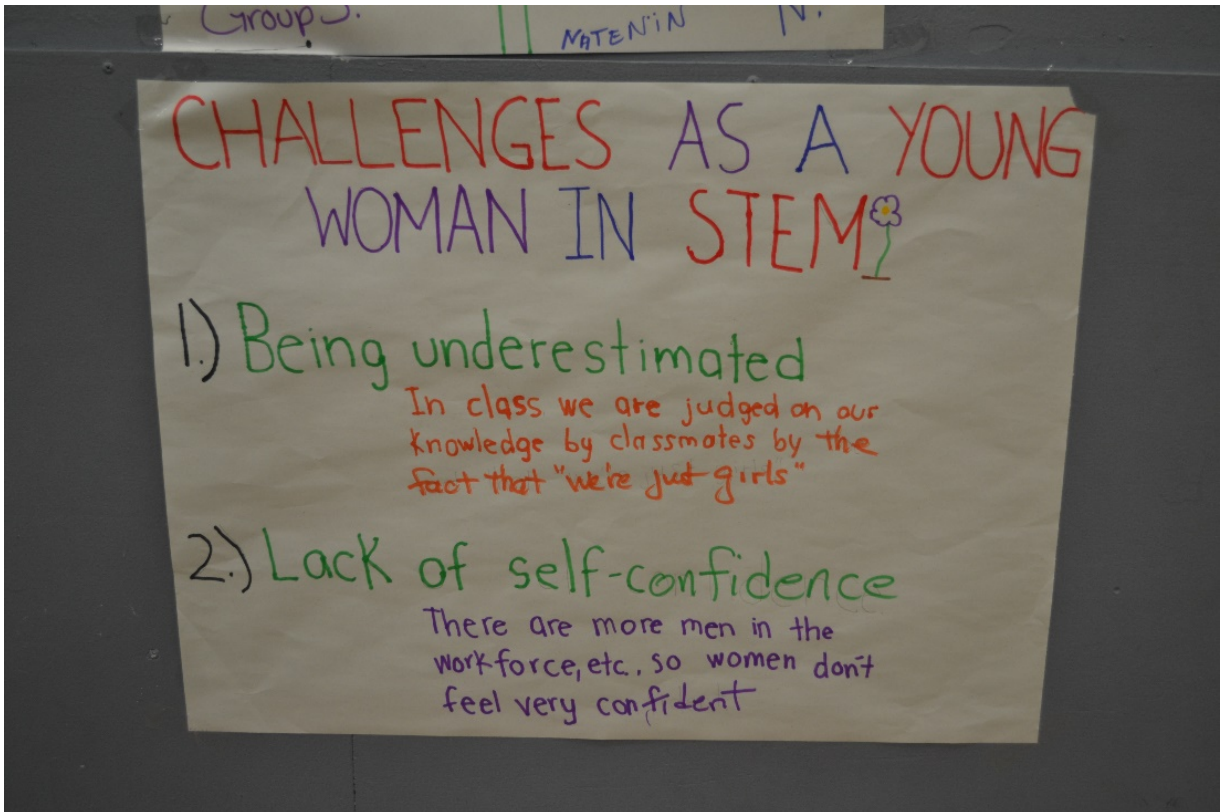 Groups.
CHALLENGES AS A YOUNG
WOMAN IN STEM
1.) Being underestimated
In class we are judged on our
knowledge by classmates by the
fact that "we're just girls"
2.) Lack of self-confidence
There are more men in the
workforce, etc., so women don't
feel very confident